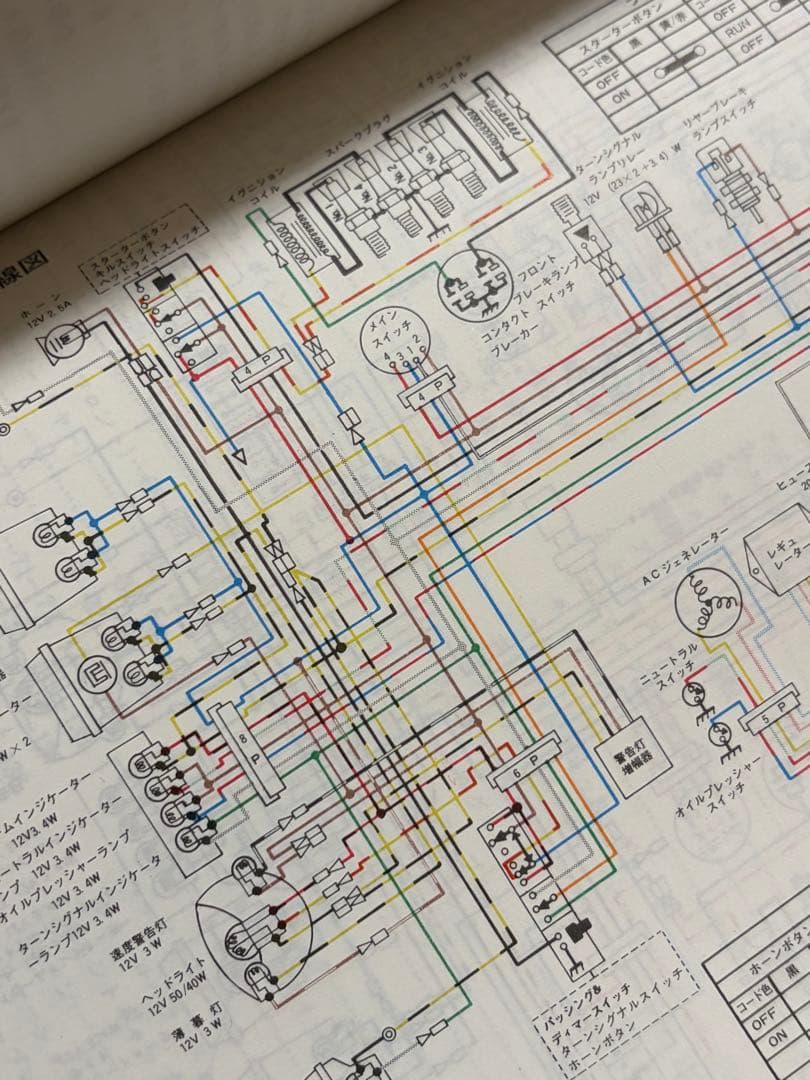 線図
スターターボタン
コード色
黒
黄/赤
OFF
ON
OFF
RUN
OFF
イグニション
コイル
スパークプラグ
No.1
No.4
No.2
No.3
イグニション
コイル
ターンシグナル
ランプリレー
12V (23×2+3.4)W
リヤーブレーキ
ランプスイッチ
スターターボタン
キルスイッチ
ヘッドライトスイッチ
ホーン
12V 2.5A
フロント
ブレーキランプ
スイッチ
コンタクト
ブレーカー
メイン
スイッチ
4 3 1 2
4P
4P
ACジェネレーター
レギュ
レーター
ヒュー
20
ニュートラル
スイッチ
5P
オイルプレッシャー
スイッチ
ーター
W×2
8P
6P
警告灯
増幅器
ームインジケーター
12V3.4W
ュートラルインジケーター
ンプ 12V 3.4W
オイルプレッシャーランプ
12V 3.4W
ターンシグナルインジケータ
ーランプ12V 3.4W
速度警告灯
12V 3W
ヘッドライト
12V 50/40W
薄暮灯
12V 3W
パッシング&
ディマースイッチ
ターンシグナルスイッチ
ホーンボタン
ホーンボタン
コード色
黒
OFF
ON